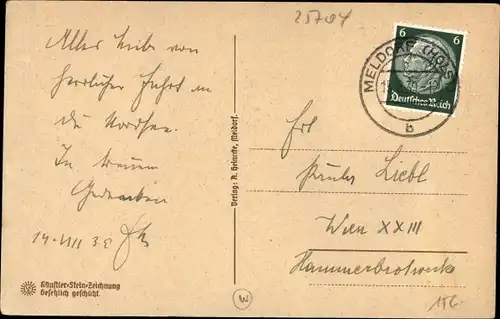 25704
Alles Liebe von
herrlicher Fahrt an
die Nordsee.
In treuem
Gedenken
14. VIII 38
Künstler-Stein-Zeichnung
Gesetzlich geschützt.
Verlag: A. Heinrichs, Meldorf.
W
MELDORF (HOLST)
b
6 6
Deutsches Reich
Liebl
Wien XXIII
Hammerbrotwerke